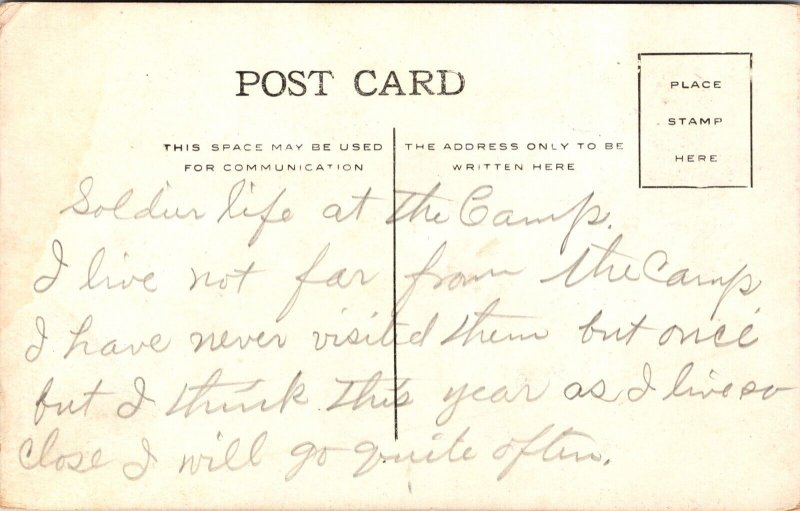 POST CARD
PLACE
STAMP
HERE
THIS SPACE MAY BE USED
FOR COMMUNICATION
THE ADDRESS ONLY TO BE
WRITTEN HERE
Soldier life at the Camp.
I live not far from the Camp
I have never visited them but once
but I think this year as I live so
close I will go quite often.